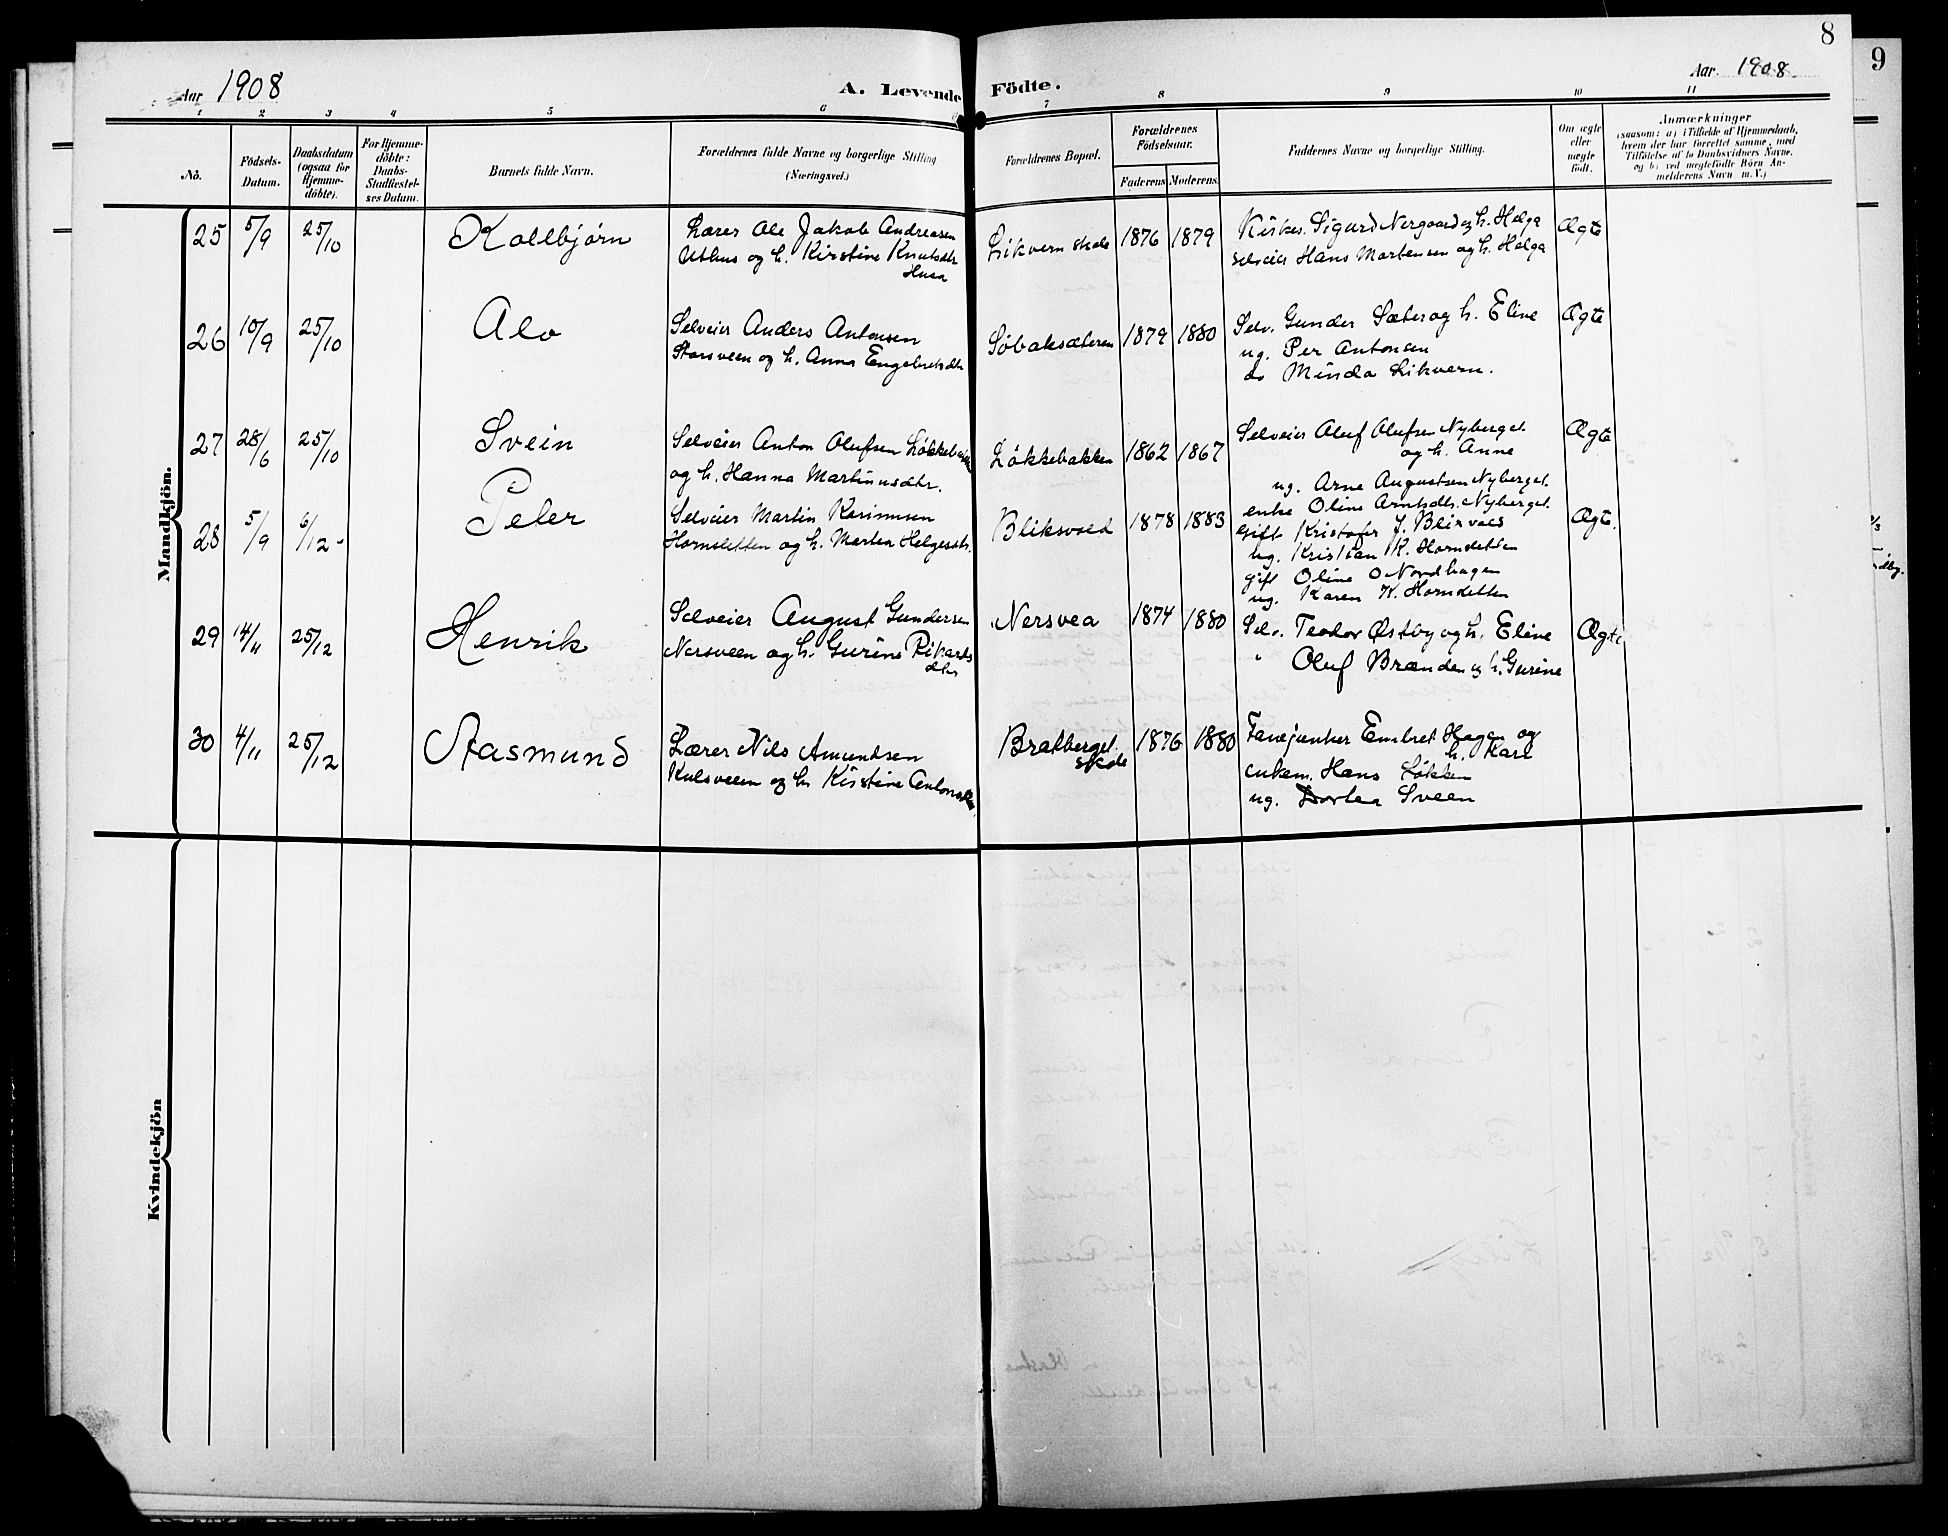 8
9
Aar 1908
A. Levende Födte.
Aar. 1908.
1 2 3 4 5 6 7 8 9 10 11
No.
Födsels-Datum.
Daabsdatum (ogsaa for Hjemme-döbte).
For Hjemme-döbte: Daabs-Stadfæstel-ses Datum.
Barnets fulde Navn.
Forældrenes fulde Navne og borgerlige Stilling (Næringsvei.)
Forældrenes Bopæl.
Forældrenes Födselsaar.
Faderens. Moderens.
Faddernes Navne og borgerlige Stilling.
Om ægte eller uægte födt.
Anmærkninger
(saasom: a) i Tilfælde af Hjemmedaab, hvem der har forrettet samme, med Tilföielse af to Daabsvidners Navne. og b) ved uegtefödte Börn An-melderens Navn m. V.)
Mandkjön.
25 5/9 25/10 Kollbjørn
Lærer Ole Jakob Andreasen
Uthus og h. Kirstine Knutsdtr
Husa
Likvern skole 1876 1879
Kirkes. Sigurd Nergaard og h. Helga
selveier Hans Martensen og h. Helga
Ægte
26 10/9 25/10 Alv
Selveier Anders Antonsen
Storsveen og h. Anna Engebretsdtr
Søbaksæteren 1879 1880
Selv. Gunder Sæter og h. Eline
ug. Per Antonsen
do Minda Likvern.
Ægte
27 28/6 25/10 Svein
Selveier Anton Olufsen Løkkebakken
og h. Hanna Martinusdtr.
Løkkebakken 1862 1867
Selveier Oluf Olufsen Nyberget
og h. Anne
ug. Arne Augustsen Nyberget.
enke Oline Arntsdtr. Nyberget.
Ægte
28 5/9 6/12 - Peter
Selveier Martin Karinusen
Hornsletten og h. Martea Helgesdtr.
Bliksvold 1878 1883
Gift Kristofer J. Blixvols
ug. Kristian K. Hornsletten
gift Oline O Nordhagen
ug. Karen K. Hornsletten
Ægte.
29 14/11 25/12 Henrik
Selveier August Gundersen
Nersveen og h. Gurine Rikards
dtr
Nersvea 1874 1880
Selv. Teodor Østby og h. Eline
" Oluf Brænden og h. Gurine
Ægte
30 4/11 25/12 Aasmund
Lærer Nils Amundsen
Kulsveen og h. Kirstine Antonsdtr.
Bratberget skole 1876 1880
Fanejunker Embret Hagen og
h. Kari
enkem. Hans Løkken
ug. Dortea Sveen
Kvindekjön